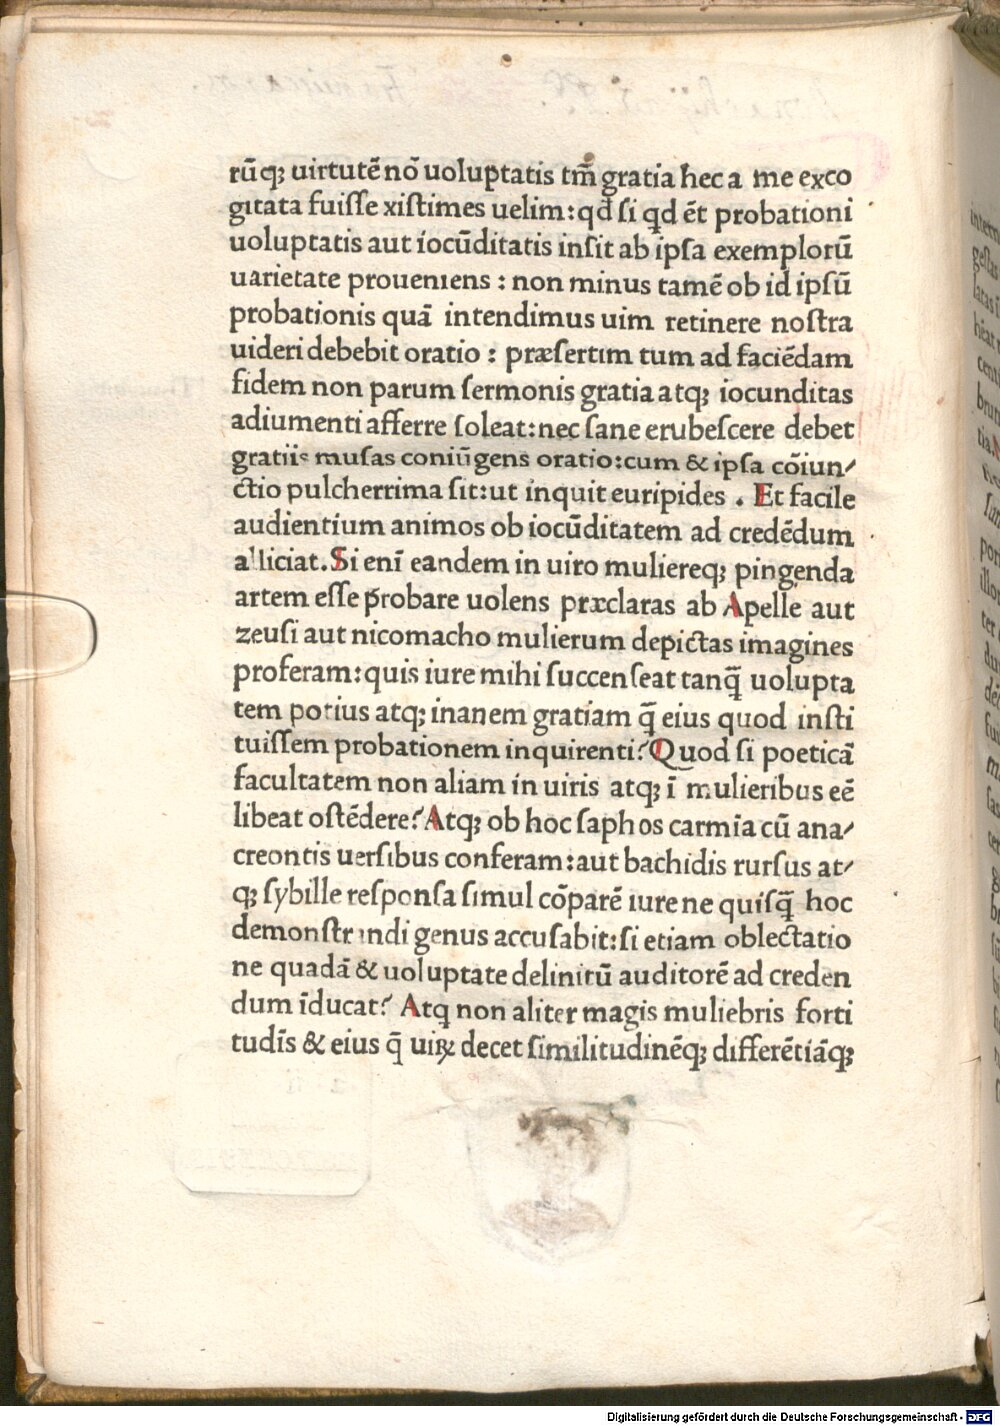 rũqꝫ uirtutẽ nõ uoluptatis tm̃ gratia hec a me exco
gitata fuiſſe xiſtimes uelim:qđ ſi qđ ẽt probationi
uoluptatis aut iocũditatis inſit ab ipſa exemplorũ
uarietate proueniens : non minus tamẽ ob id ipſũ
probationis quã intendimus uim retinere noſtra
uideri debebit oratio : præſertim tum ad faciẽdam
fidem non parum ſermonis gratia atqꝫ iocunditas
adiumenti afferre ſoleat:nec ſane erubeſcere debet
gratiis muſas coniũgens oratio:cum & ipſa cõiun⸗
ctio pulcherrima ſit:ut inquit euripides . Et facile
audientium animos ob iocũditatem ad credẽdum
alliciat. Si enĩ eandem in uiro muliereqꝫ pingenda
artem eſſe ꝓbare uolens præclaras ab Apelle aut
zeuſi aut nicomacho mulierum depictas imagines
proferam:quis iure mihi ſuccenſeat tanq̃ uolupta
tem potius atqꝫ inanem gratiam q̃ eius quod inſti
tuiſſem probationem inquirenti? Quod ſi poeticã
facultatem non aliam in uiris atqꝫ ĩ mulieribus eẽ
libeat oſtẽdere? Atqꝫ ob hoc ſaphos carmĩa cũ ana⸗
creontis uerſibus conferam:aut bachidis rurſus at⸗
qꝫ ſybille reſponſa ſimul cõparẽ iure ne quiſq̃ hoc
demonſtrandi genus accuſabit:ſi etiam oblectatio
ne quadã & uoluptate delinitũ auditorẽ ad creden
dum ĩducat? Atq non aliter magis muliebris forti
tudĩs & eius q̃ uiꝝ decet ſimilitudinẽqꝫ differẽtiãqꝫ
Digitalisierung gefördert durch die Deutsche Forschungsgemeinschaft - DFG